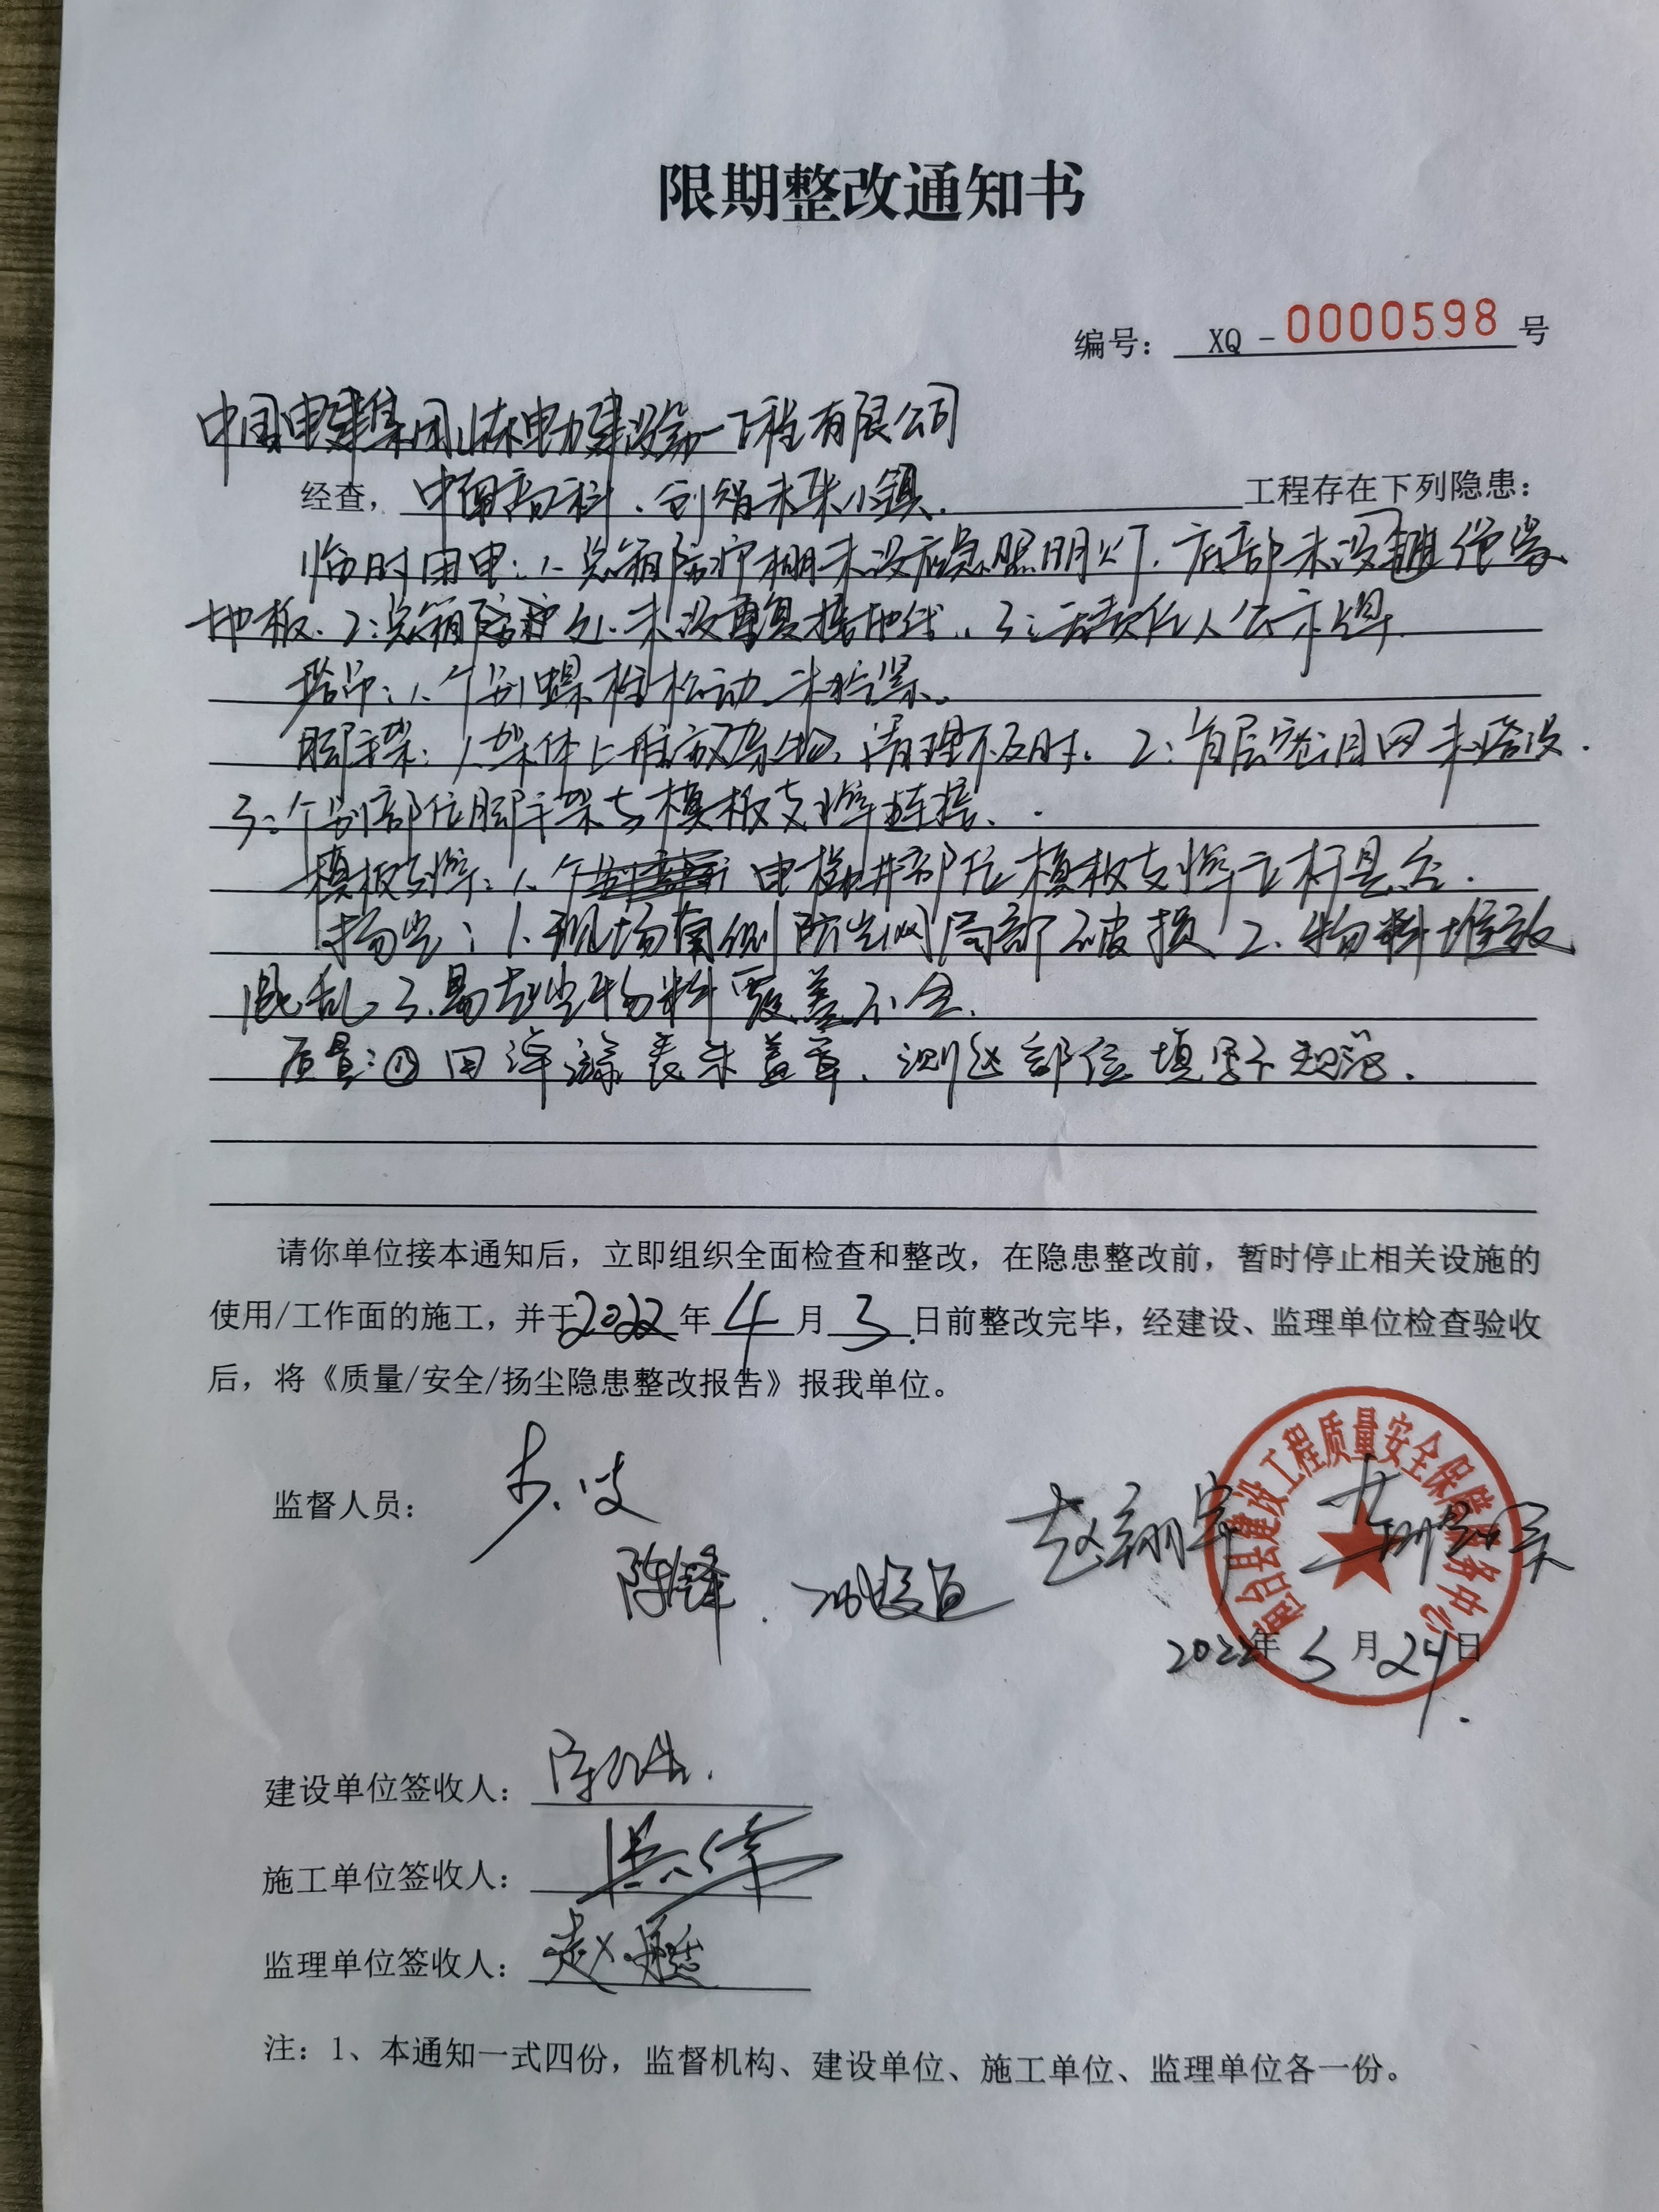 限期整改通知书
编号： XQ－0000598 号
中国电建集团山东电力建设第一工程有限公司
经查，中南高科、创智未来小镇. 工程存在下列隐患：
临时用电：1、总箱防护棚未设应急照明灯. 底部未设绝缘
地板. 2：总箱防护处未设重复接地线. 3：无责任人公示牌.
塔吊：1、个别螺栓松动未拧紧。
脚手架：1、架体上堆放杂物，清理不及时。2：首层密目网未搭设.
3：个别部位脚手架与模板支撑连接.
模板支撑：1、电梯井部位模板支撑立杆悬空.
扬尘：1、现场南侧防尘网局部破损 2、物料堆放
混乱 3、易起尘物料覆盖不全.
质量：① 回弹 表未盖章、测区部位填写不规范.
请你单位接本通知后，立即组织全面检查和整改，在隐患整改前，暂时停止相关设施的
使用/工作面的施工，并于2022年4月3日前整改完毕，经建设、监理单位检查验收
后，将《质量/安全/扬尘隐患整改报告》报我单位。
县建设工程质量安全保障服务中心
监督人员：
陈锋 赵翔宇
2022年3月29日
建设单位签收人：
施工单位签收人：
监理单位签收人：赵
注：1、本通知一式四份，监督机构、建设单位、施工单位、监理单位各一份。